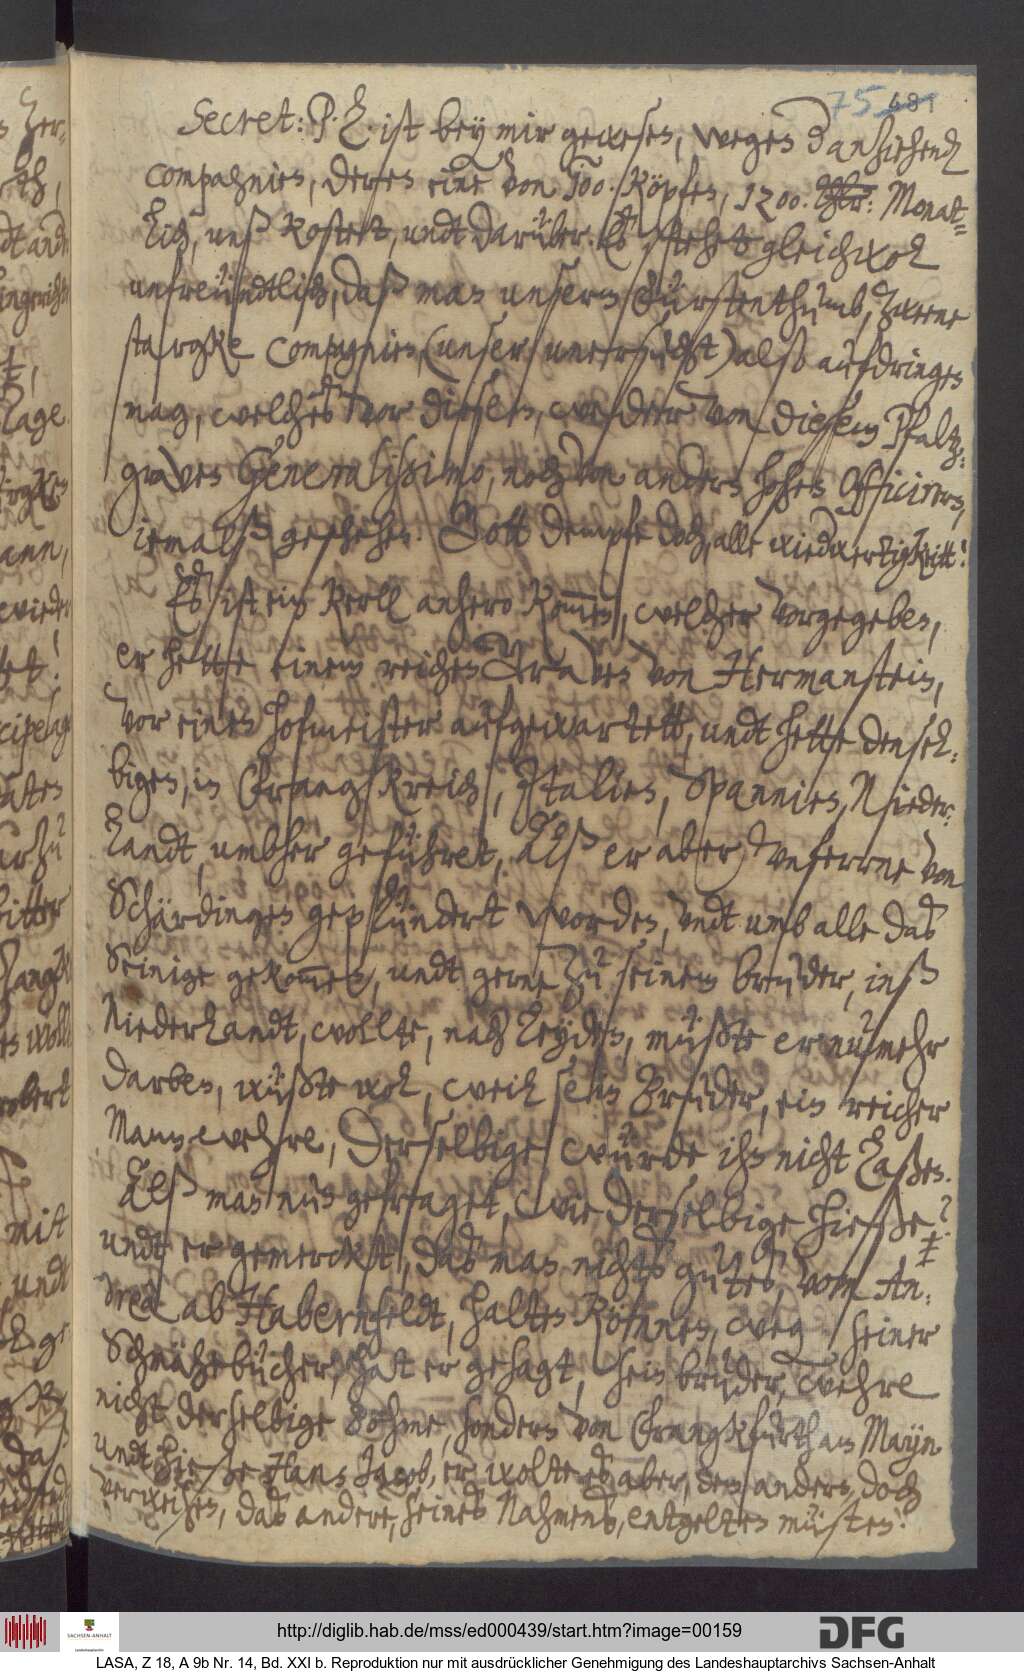 75 481
Secret: P. L. ist bey mir gewesen, wegen d anziehende
compagnien, deren eine von 100. Köpfen, 1200. Thlr: Monat=
lich, unß kostett, undt darüber. Es stehet gleichwol
unfreündtlich, daß man unserm Fürstenthumb, zweene
starcke Compagnien, (unser unersucht) alß aufdringen
mag, welches vor diesem, weder von diesem Pfaltz:
graven Generalissimo, noch von andern hohen Officirern,
iemalß geschehen. Gott dempfe doch, alle wiedwertigkeitt!
Es ist ein Kerll anhero kom̄en, welcher vorgegeben,
er hette einem reichen Graven von Hermanstein,
vor einen hofmeister aufgewartett, undt hette densel:
bigen, in Franckreich, Jtalien, Spannien, Nieder:
landt, umbher geführet, Alß er aber, unferrne von
Schärdingen geplündert worden, undt umb alle das
Seinige gekom̄en, undt gerne zu seinem bruder, inß
Niederlandt, wollte, nach Leyden, müßte er numehr
darben, wüßte wol, weil sein Bruder, ein reicher
Mann wehre, derselbige würde ihn nicht laßen.
Alß man nun gefraget, wie derselbige hieße?
undt er gemerckt, das man nichts gutes, vom An:
drea ab Habernfeldt, halten können, weg seiner
Schmähebücher, hat er gesagt, sein bruder, wehre
nicht derselbige Böhme, sondern von Franckfurth am Mayn
undt hieße Hans Jacob, er wolte es aber, dem andern, doch
verweisen, das andere, seines Nahmens, entgelten müsten.
http://diglib.hab.de/mss/ed000439/start.htm?image=00159
SACHSEN-ANHALT
DFG
LASA, Z 18, A 9b Nr. 14, Bd. XXI b. Reproduktion nur mit ausdrücklicher Genehmigung des Landeshauptarchivs Sachsen-Anhalt